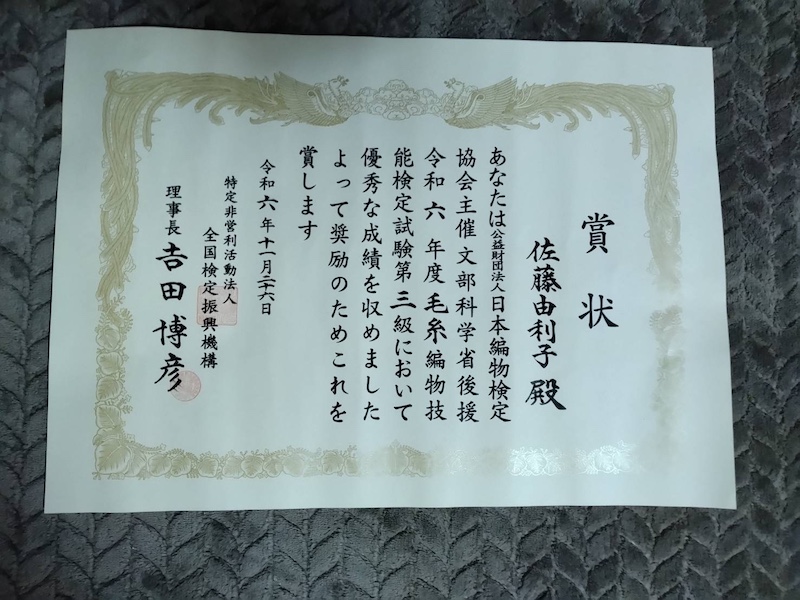 賞状
佐藤由利子殿
あなたは公益財団法人日本編物検定
協会主催文部科学省後援
令和六年度毛糸編物技
能検定試験第三級において
優秀な成績を収めました
よって奨励のためこれを
賞します
令和六年十一月二十六日
特定非営利活動法人
全国検定振興機構
理事長 𠮷田博彦